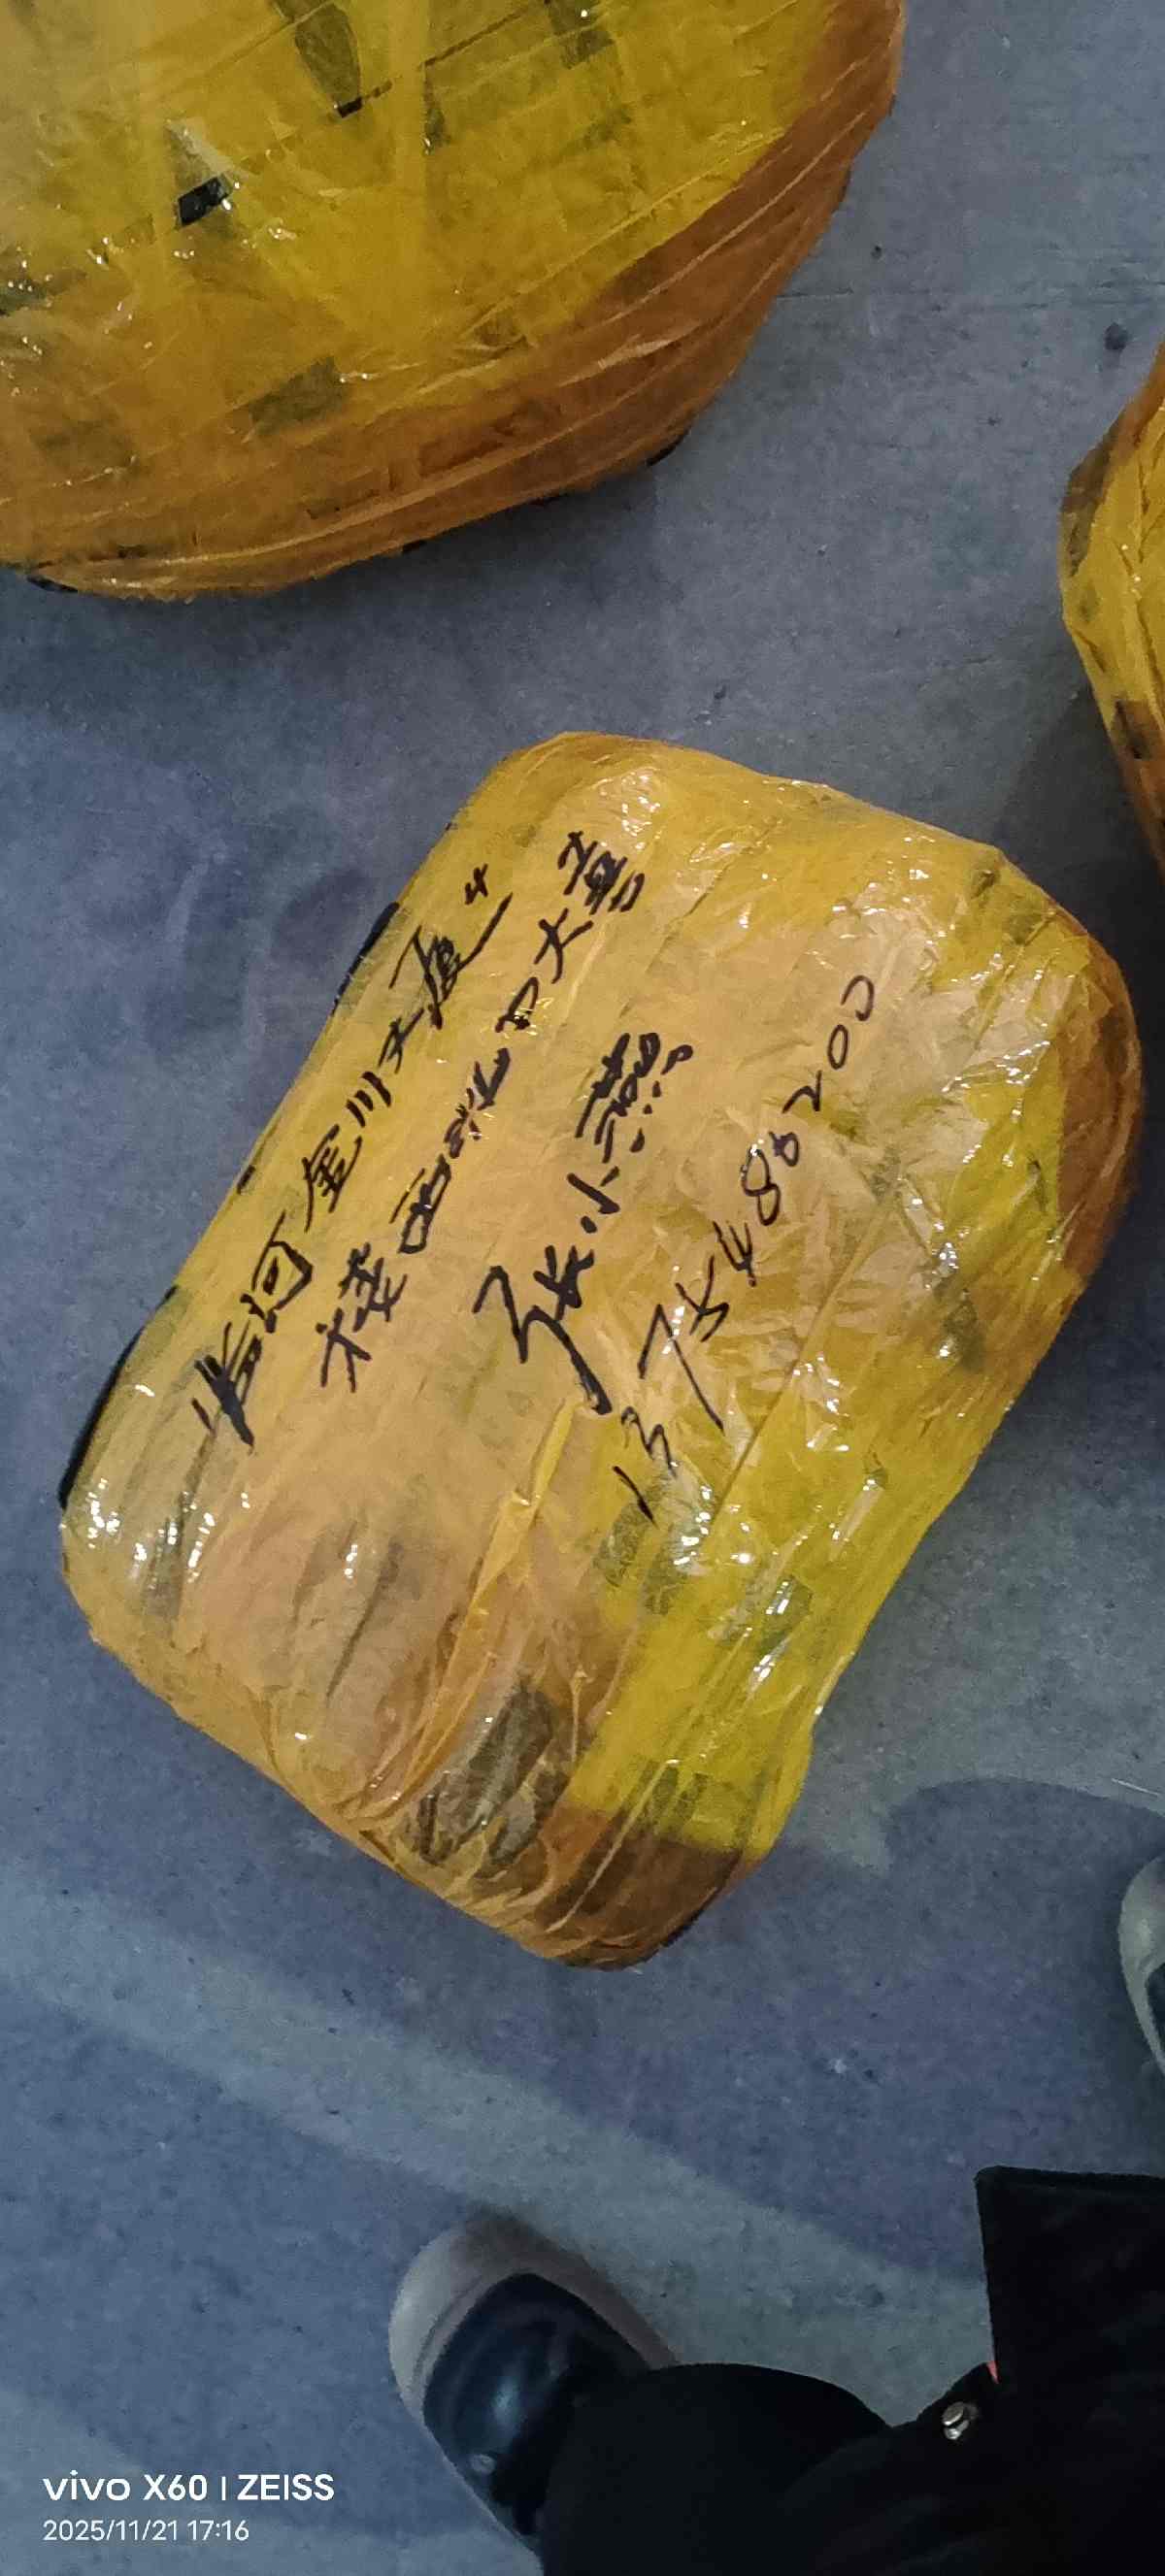 临河金川大厦4
楼西张口大喜
张小燕
1375486200
vivo X60 | ZEISS
2025/11/21 17:16